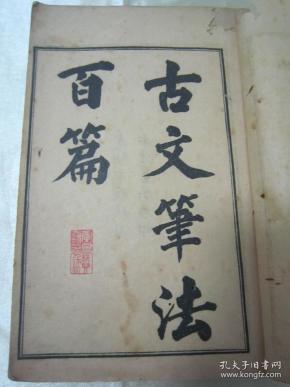 古文筆法
百篇
孔夫子旧书网
kongfz.com